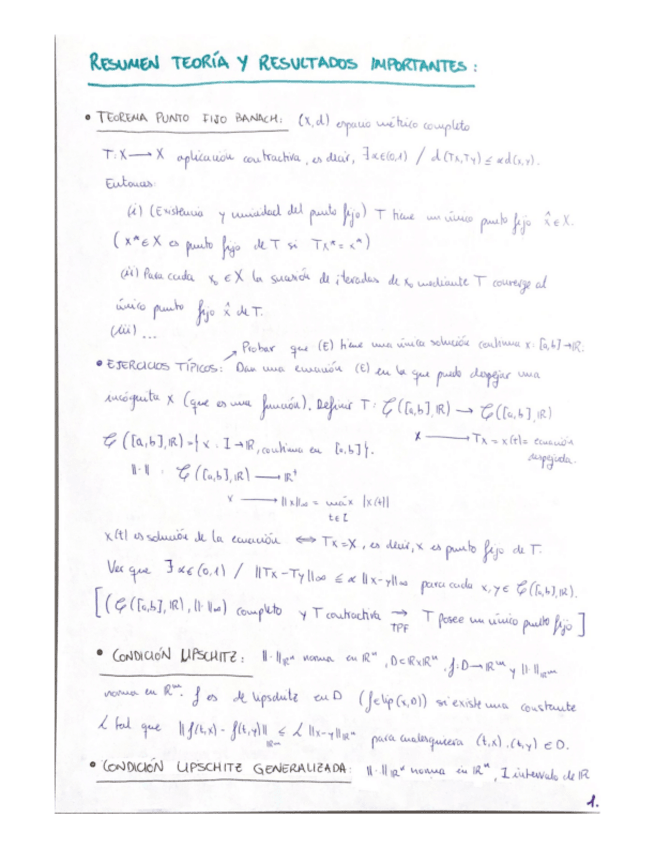 RESUMEN TEORÍA Y RESULTADOS IMPORTANTES:
• TEOREMA PUNTO FIJO BANACH: (X,d) espacio métrico completo
T: X → X aplicación contractiva, es decir, ∃α∈(0,1) / d(Tx,Ty) ≤ αd(x,y).
Entonces:
(i) (Existencia y unicidad del punto fijo) T tiene un único punto fijo x̂ ∈ X.
(x* ∈ X es punto fijo de T si Tx* = x*)
(ii) Para cada x₀ ∈ X la sucesión de iteradas de x₀ mediante T converge al
único punto fijo x̂ de T.
(iii) ...
Probar que (E) tiene una única solución continua x: [a,b]→ℝ.
• EJERCICIOS TÍPICOS: Dan una ecuación (E) en la que puedo despejar una
incógnita x (que es una función). Definir T: 𝒞([a,b],ℝ) → 𝒞([a,b],ℝ)
x → Tx = x(t) = ecuación
despejada.
𝒞([a,b],ℝ) = { x: I→ℝ, continua en [a,b] }.
‖·‖ : 𝒞([a,b],ℝ) → ℝ⁺
x → ‖x‖∞ = máx |x(t)|
t∈I
x(t) es solución de la ecuación ⟺ Tx=x, es decir, x es punto fijo de T.
Ver que ∃α∈(0,1) / ‖Tx-Ty‖∞ ≤ α‖x-y‖∞ para cada x,y∈ 𝒞([a,b],ℝ).
[(𝒞([a,b],ℝ), ‖·‖∞) completo y T contractiva → T posee un único punto fijo]
TPF
• CONDICIÓN LIPSCHITZ: ‖·‖ℝⁿ norma en ℝⁿ, D⊂ℝxℝⁿ, f: D→ℝᵐ y ‖·‖ℝᵐ
norma en ℝᵐ. f es de lipschitz en D (f∈lip(x,D)) si existe una constante
L tal que ‖f(t,x) - f(t,y)‖ℝᵐ ≤ L ‖x-y‖ℝⁿ para cualesquiera (t,x),(t,y) ∈ D.
• CONDICIÓN LIPSCHITZ GENERALIZADA: ‖·‖ℝⁿ norma en ℝⁿ, I intervalo de ℝ
1.